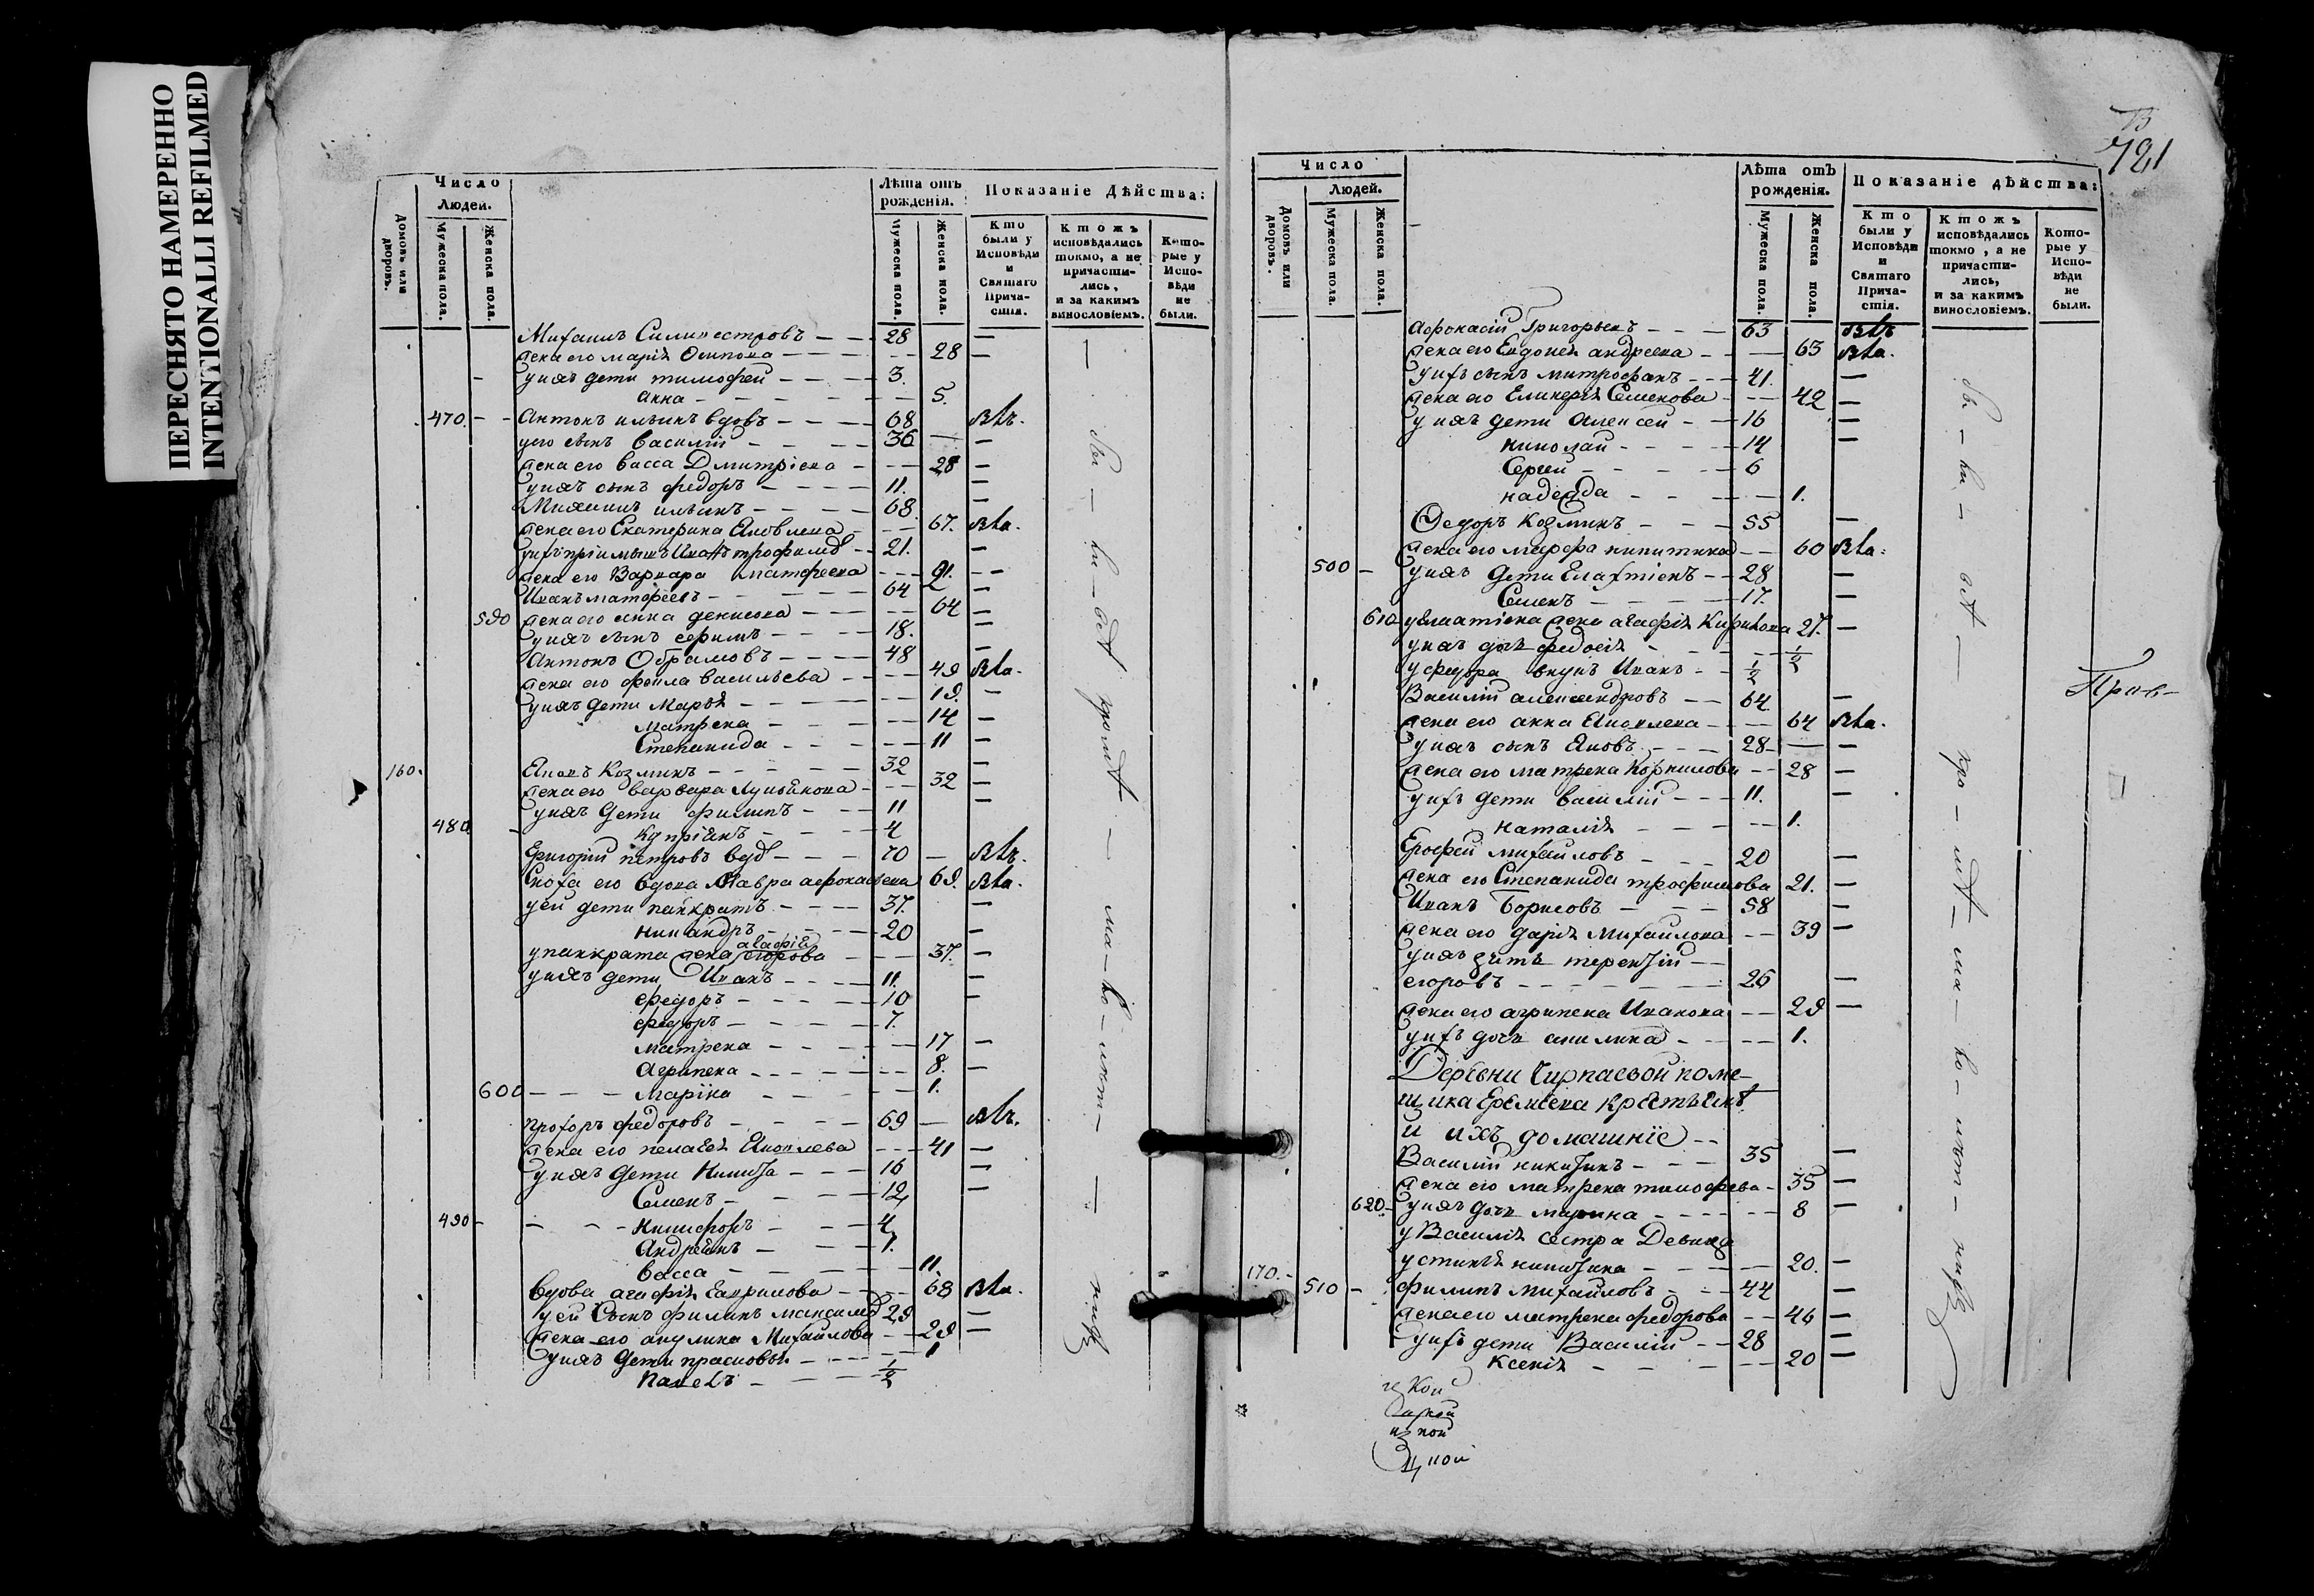 ПЕРЕСНЯТО НАМЕРЕННО
INTENTIONALLI REFILMED
Число
Людей.
Домовъ или дворовъ.
Мужеска пола.
Женска пола.
Лѣта отъ рожденія.
Мужеска пола.
Женска пола.
Показаніе дѣйства:
Кто были у Исповѣди и Святаго Причастія.
Ктожъ исповѣдались токмо, а не причастились, и за какимъ винословіемъ.
Которые у Исповѣди не были.
Михаилъ Силивестровъ 28 —
жена его марія Осипова 28 —
у нихъ дети тимофей 3.
анна 5.
470. Антонъ ильинъ вдовъ 68
у его сынъ василій 36 —
жена его васса Дмитріева 28 —
у нихъ сынъ федоръ 11. —
ильинъ 68.
жена его Екатерина Яковлева 67.
21. —
жена его Варвара матфеева 21. —
Иванъ матфеевъ 64 —
590 жена его анна денисова 64 —
у нихъ сынъ ефимъ 18. —
Антонъ Обрамовъ 48 —
жена его фекла васильева 49
у нихъ дети Марья 19. —
матрена 14 —
Степанида 11 —
160. Яковъ Козминъ 32 —
жена его варвара 32 —
у нихъ дети филипъ 11 —
480 Купріянъ 4
Григорий петровъ вдовъ 70 —
Сноха его вдова Мавра афонасьева 69.
у ей дети панкратъ 37. —
никандръ 20 —
агафія
у панкрата жена егорова 37. —
у нихъ дети Иванъ 11. —
федоръ 10 —
федоръ 7.
матрена 17 —
Агрипена 8. —
600 Марина 1.
прохоръ федоровъ 69 —
жена его пелагея Яковлева 41 —
у нихъ дети Никита 16 —
Семенъ 12 —
490 Никифоръ 4
Андреянъ 1.
васса 11.
вдова агафія Гаврилова 68
у ей Сынъ филипъ максимов 29 —
жена его акулина Михайлова 29 —
у нихъ дети прасковья 1
Павелъ 1/2
721
Число
Людей.
Домовъ или дворовъ.
Мужеска пола.
Женска пола.
Лѣта отъ рожденія.
Мужеска пола.
Женска пола.
Показаніе дѣйства:
Кто были у Исповѣди и Святаго Причастія.
Ктожъ исповѣдались токмо, а не причастились, и за какимъ винословіемъ.
Которые у Исповѣди не были.
Афонасій Григорьевъ 63
жена его Евдокея андреева 63
у нихъ сынъ митрофанъ 41. —
жена его Семенова 42 —
у нихъ дети Алексей 16 —
николай 14 —
Сергей 6
надежда 1.
Федоръ Козминъ 55 —
жена его марфа никитина 60
500 у нихъ дети Евлахтіенъ 28 —
Семенъ 17. —
610 жена агафія Кирилова 27. —
у нихъ дочь федосія 1/2
у федора внукъ Иванъ 1/2
Василій александровъ 64 —
жена его анна Яковлева 64
у нихъ сынъ Яковъ 28 —
жена его матрена Корнилова 28 —
у нихъ дети василій 11. —
наталія 1.
Ерофей михайловъ 20 —
жена его Степанида трофимова 21. —
Иванъ Борисовъ 58 —
жена его дарія Михайлова 39 —
у нихъ зять терентій
егоровъ 26 —
жена его агрипена Иванова 29 —
у нихъ дочь акилина 1.
Деревни поме-
щика крестьяне
и ихъ домашніе
Василій никитинъ 35 —
жена его матрена тимофева 35 —
620. у нихъ дочь марина 8 —
у Василія сестра Девица
устинья никитина 20. —
170. 510 филипъ михайловъ 44 —
жена его матрена федорова 46 —
у нихъ дети Василій 28 —
ксенія 20 —